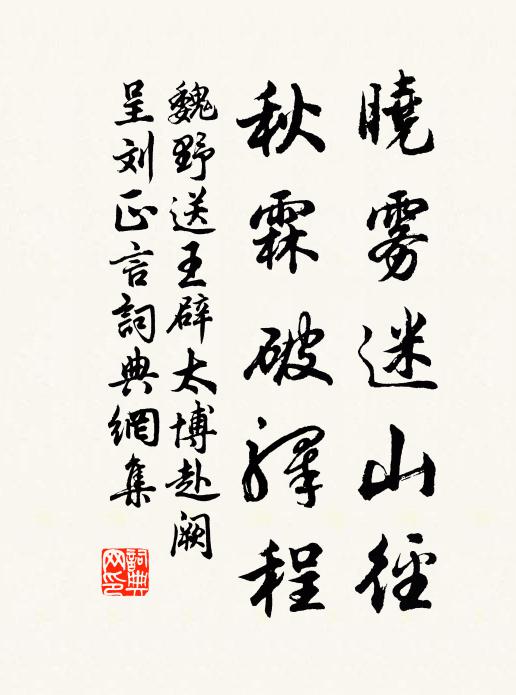 曉雾迷山徑
秋霖破驛程
魏野送王辟太博赴阙
呈刘正言詞典網集
詞典網印